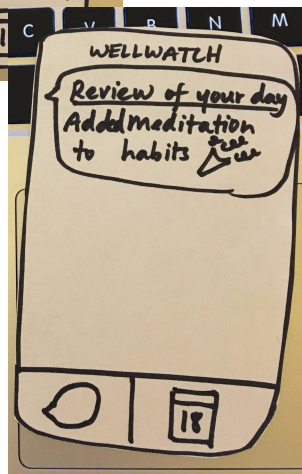 C V B N M
WELLWATCH
Review of your day
Added meditation
to habits
18